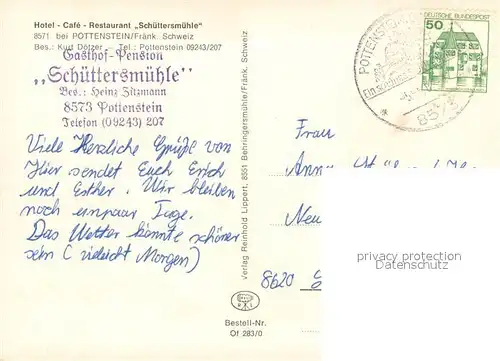 Hotel - Café - Restaurant „Schüttersmühle"
8571 bei POTTENSTEIN/Fränk. Schweiz
Bes.: Kurt Dötzer - Tel.: Pottenstein 09243/207
Gasthof-Pension
„Schüttersmühle"
Bes.: Heinz Zitzmann
8573 Pottenstein
Telefon (09243) 207
Viele Herzliche Grüße von
Hier sendet Euch Erich
und Esther. Wir bleiben
noch einpaar Tage.
Das Wetter könnte schöner
sein (vieleicht Morgen)
Verlag Reinhold Lippert, 8551 Behringersmühle/Fränk. Schweiz
Bestell-Nr.
Of 283/0
POTTENSTEIN
8573
DEUTSCHE BUNDESPOST
50
Frau
Neu
8620
privacy protection
Datenschutz